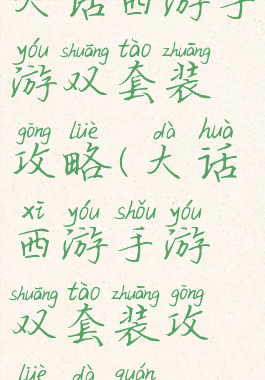 大话西游手
yóu shuāng tào zhuāng
游双套装
gōng lüè dà huà
攻略(大话
xī yóu shǒu yóu
西游手游
shuāng tào zhuāng gōng
双套装攻
lüè dà quán